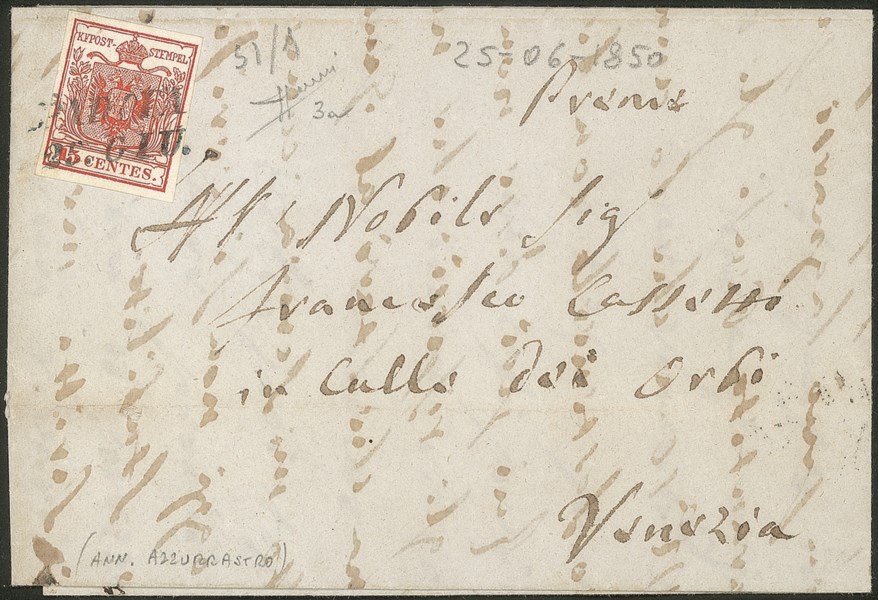 KKPOST-STEMPEL
25. GIU.
15 CENTES.
51/A
3a
25-06-1850
Preme
Al Nobile Sig
Francesco Cassetti
in Calle dei Orbi
Venezia
(ANN. AZZURRASTRO)